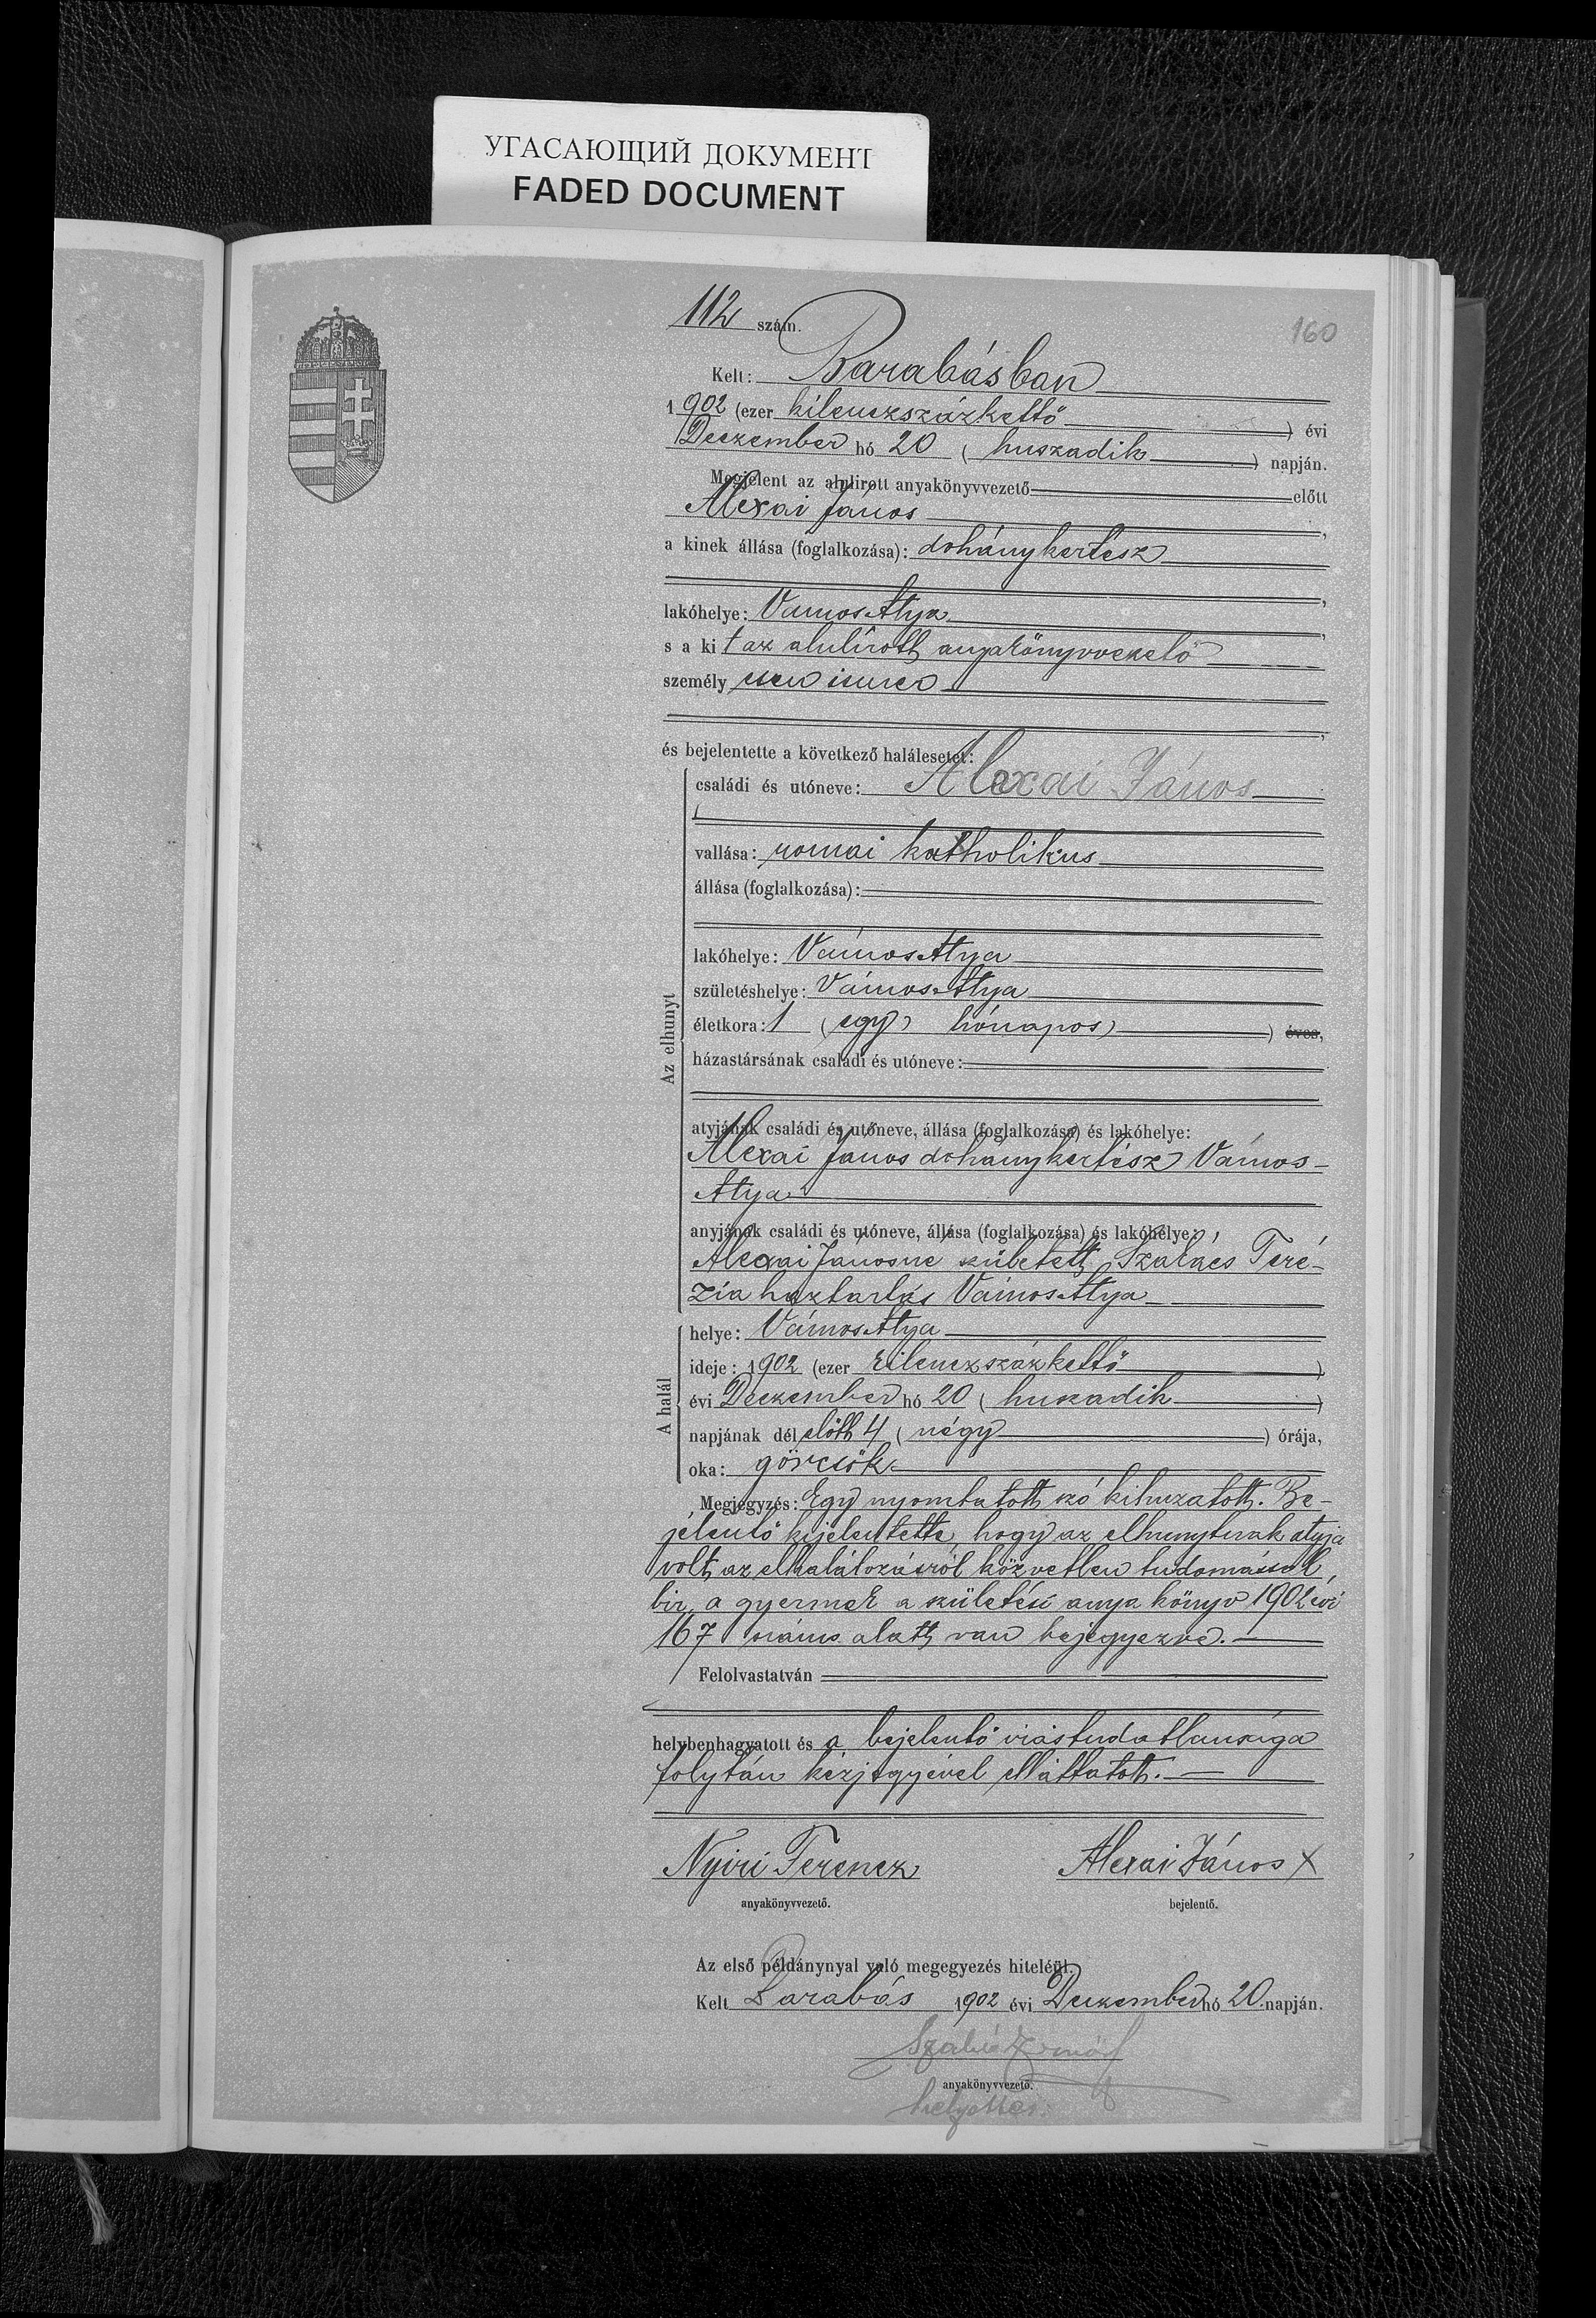 УГАСАЮЩИЙ ДОКУМЕНТ
FADED DOCUMENT
112 szám.
160
Kelt: Barabásban
1902 (ezer kilenczszázkettő) évi
Deczember hó 20 (huszadik) napján.
Megjelent az alulirott anyakönyvvezető előtt
Alexai János,
a kinek állása (foglalkozása): dohánykertész
,
lakóhelye: Vamos Atya,
s a kit az alulirott anyakönyvvezető
személyesen ismer
,
és bejelentette a következő halálesetet:
Az elhunyt
családi és utóneve: Alexai János
vallása: romai katholikus
állása (foglalkozása):
lakóhelye: Vámos Atya
születéshelye: Vámos Atya
életkora: 1 (egy) hónapos) éves,
házastársának családi és utóneve:
atyjának családi és utóneve, állása (foglalkozása) és lakóhelye:
Alexai János dohánykertész Vámos-
Atya
anyjának családi és utóneve, állása (foglalkozása) és lakóhelye:
Alexai Jánosné született Szakács Teré-
zia háztartás Vámos Atya
A halál
helye: Vámos Atya
ideje: 1902 (ezer kilenczszázkettő)
évi Deczember hó 20 (huszadik)
napjának dél előtt 4 (négy) órája,
oka: görcsök
Megjegyzés: Egy nyomtatott szó kihuzatott. Be-
jelentő kijelentette, hogy az elhunytnak atyja
volt, az elhalálozásról közvetlen tudomással
bir, a gyermek a születési anya könyv 1902 évi
167 száma alatt van bejegyezve.
Felolvastatván
helybenhagyatott és a bejelentő irástudatlansága
folytán kézjegyével elláttatott.
Nyiri Ferencz
anyakönyvvezető.
Alexai János X
bejelentő.
Az első példánynyal való megegyezés hiteléül.
Kelt Barabás 1902 évi Deczember hó 20. napján.
Szabó
anyakönyvvezető.
helyettes.